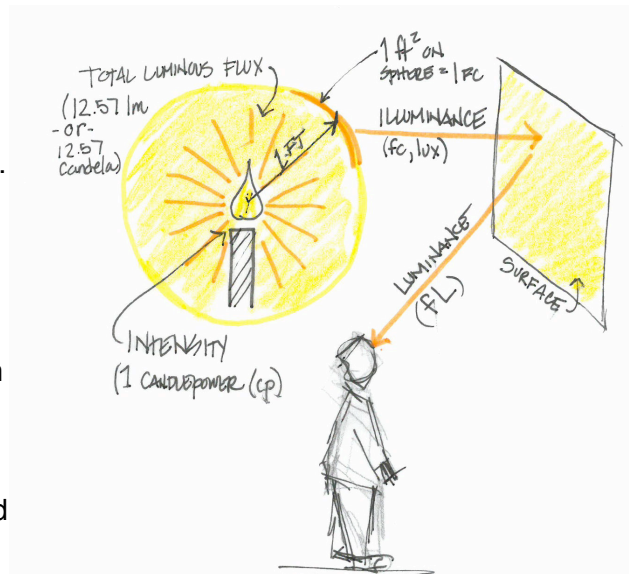 TOTAL LUMINOUS FLUX
(12.57 lm
- or -
12.57
Candela)
1 ft² ON
SPHERE = 1 FC
1 FT
ILLUMINANCE
(fc, lux)
LUMINANCE
(fL)
SURFACE
INTENSITY
(1 CANDLEPOWER (cp)
.
n
d